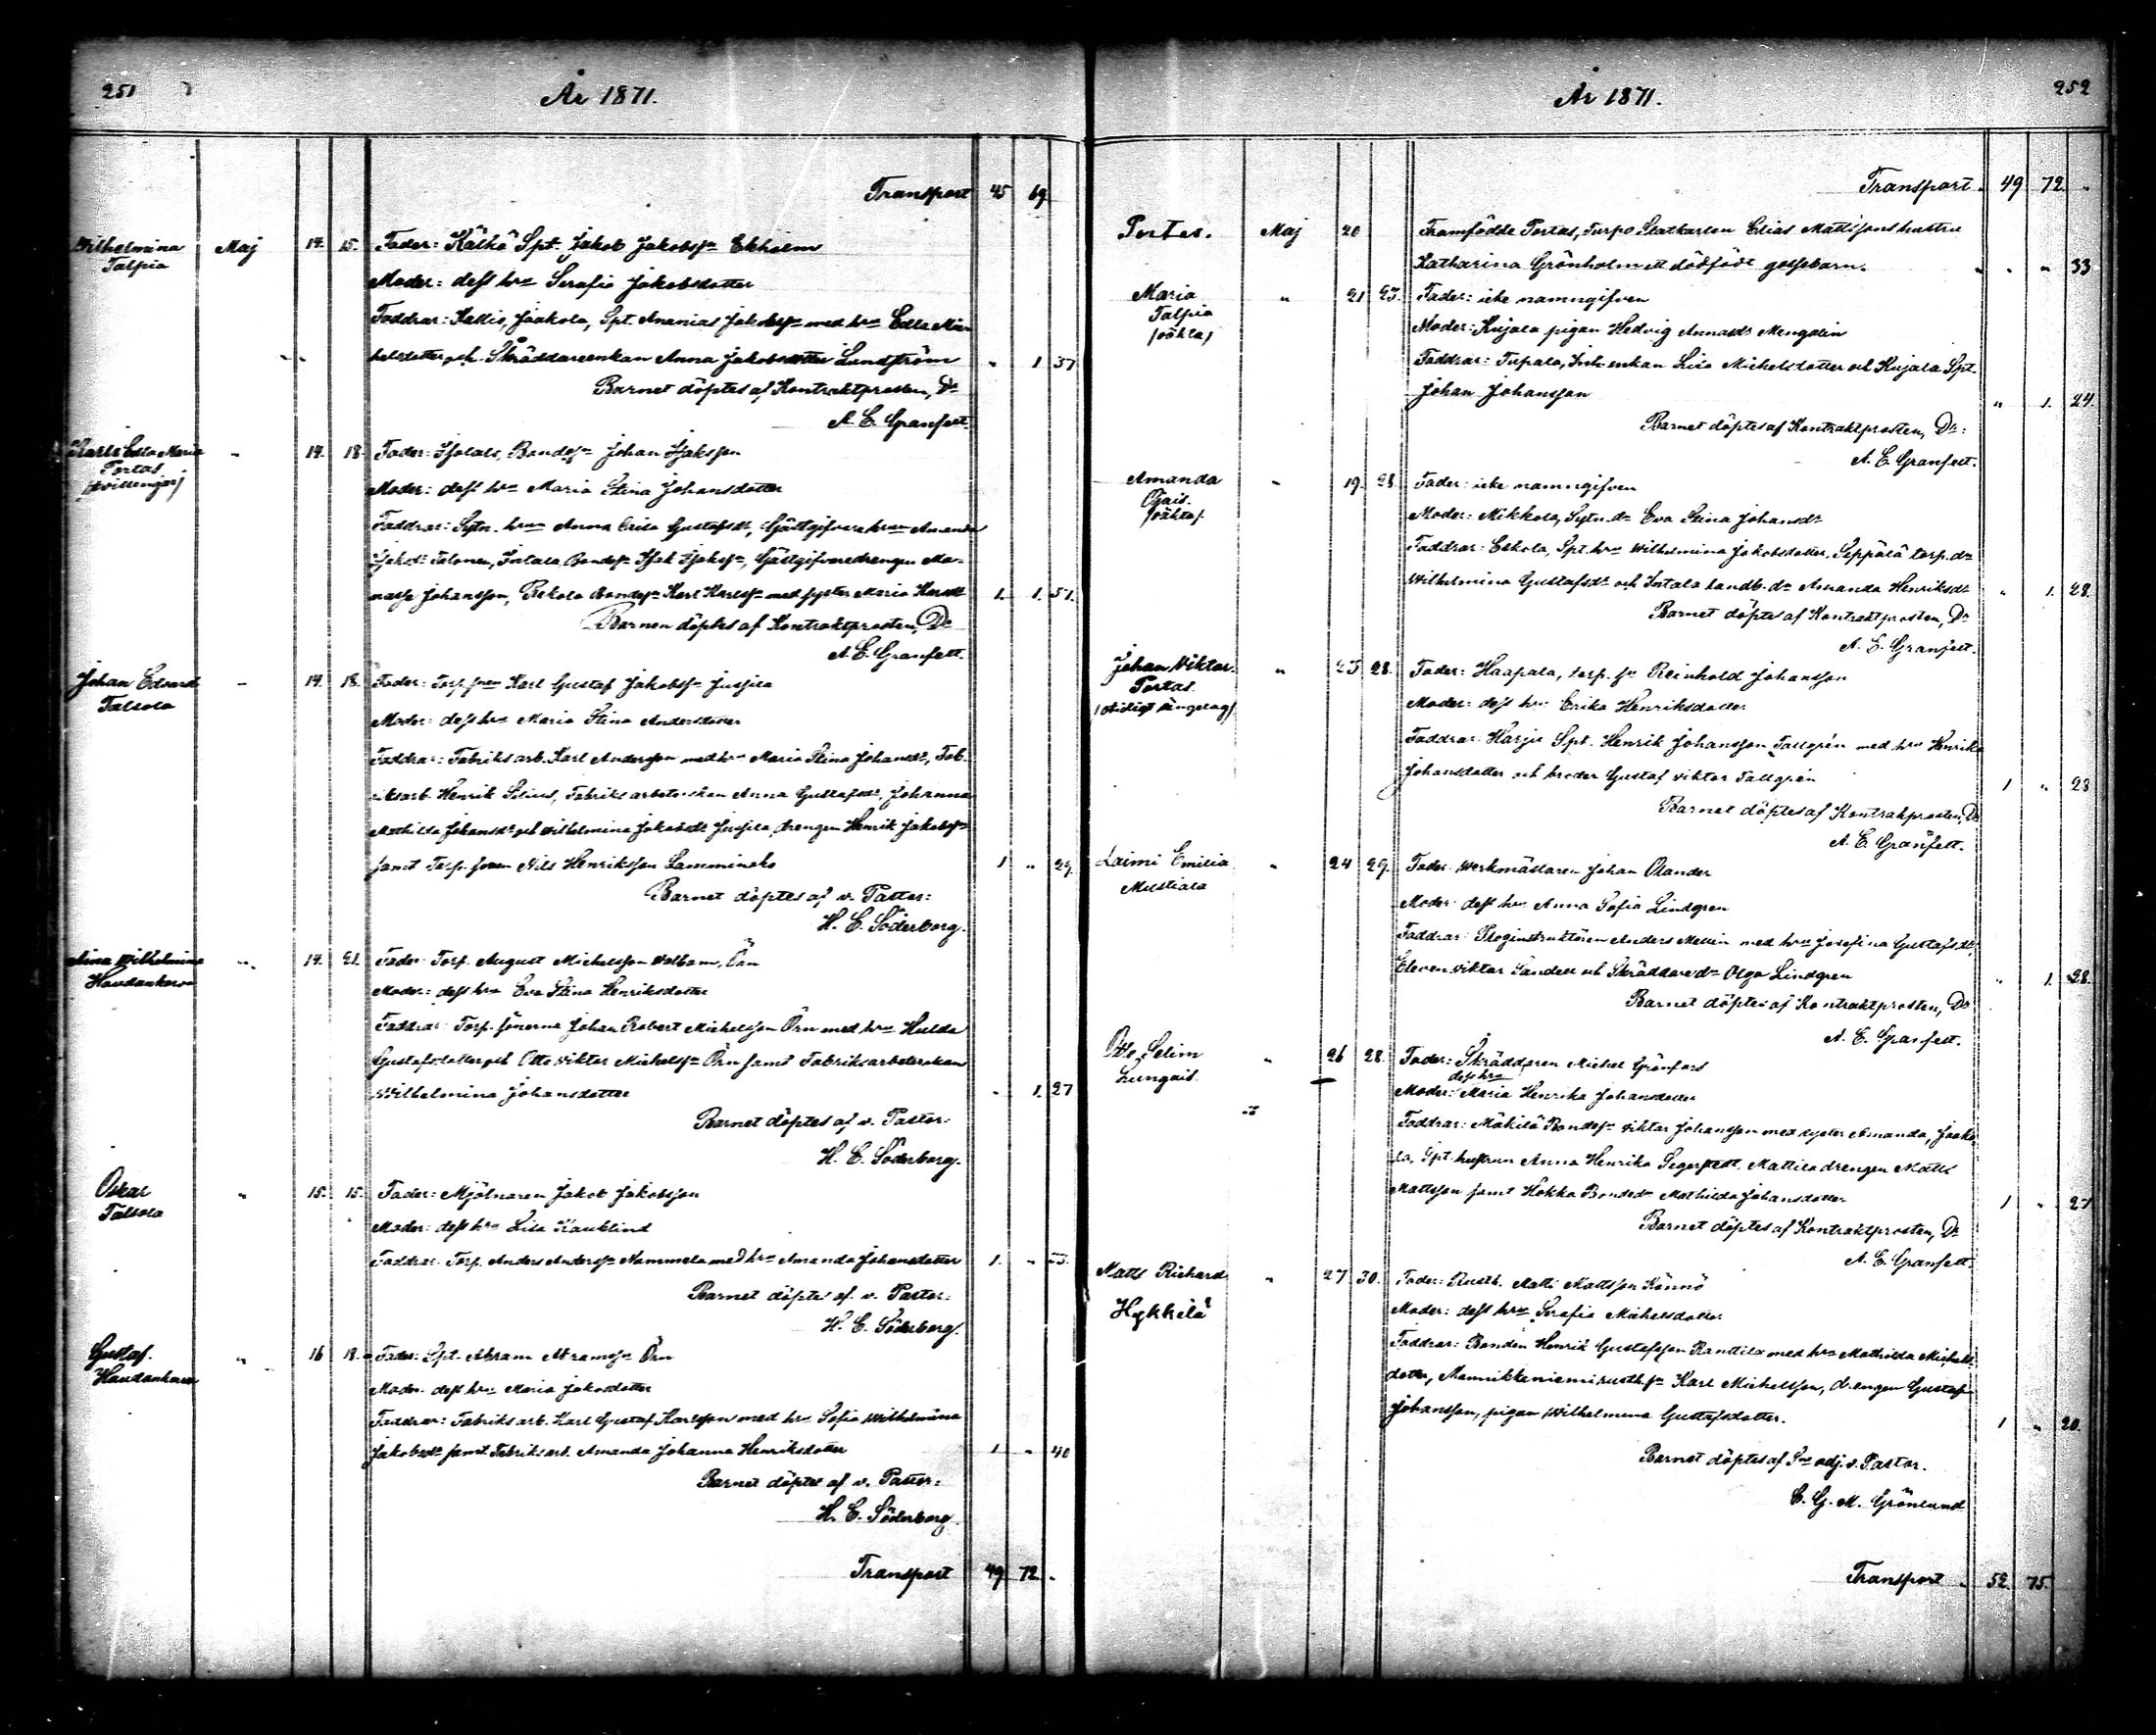 251
År 1871.
Transport 45 69
Wilhelmina Talpia Maj 14. 15. Fader: Kälhä Spt. Jakob Jakobss:n Ekholm
Moder: dess h:u Serafia Jakobsdotter
Faddrar: Kallio, Jaakola, Spt. Ananias Jakobss:n med h:u Edla Mic-
helsdotter och Skräddareenkan Anna Jakobsdotter Lundström " 1 37
Barnet döptes af Kontraktprosten, D:r
A. E. Granfelt.
Karl o Edla Maria Portas (tvillingar) " 14. 18. Fader: Isotalo, Bondes:n Johan Isaksson
Moder: dess h:u Maria Stina Johansdotter
Faddrar: Sytn. h:un Anna Caisa Gustafsd:r, Gästgifvare h:un Amanda
Isaksd:r Talonen, Intala Bondes:n Isak Isakss:n, Gästgifvaredrengen Ma-
nasse Johansson, Pekola Bondes:n Karl Karlss:n med syster Maria Karlsd:r 1. 1. 51.
Barnen döptes af Kontraktprosten, D:r
A. E. Granfelt.
Johan Edvard Talsola " 14. 18. Fader: Torp. sonen Karl Gustaf Jakobss:n Jussila
Moder: dess h:u Maria Stina Andersdotter
Faddrar: Fabriks arb. Karl Andersson med h:u Maria Stina Johansd:r, Fab-
riksarb. Henrik Silius, Fabriks arbeterskan Anna Gustafsd:r, Johanna
Mathilda Johansd:r och Wilhelmina Jakobsd:r Jussila, drengen Henrik Jakobss:n
samt Torp. sonen Nils Henriksson Lamminsko 1 " 29.
Barnet döptes af v. Pastor:
H. E. Söderborg.
Wilhelmina Haudankorva " 14. 21. Fader: Torp. August Michelsson Örn
Moder: dess h:u Eva Stina Henriksdotter
Faddrar: Torp. sönerna Johan Robert Michelsson Örn med h:u Hulda
Gustafsdotter och Otto Viktor Michelss:n Örn samt Fabriksarbeterskan
Wilhelmina Johansdotter " 1. 27
Barnet döptes af v. Pastor:
H. E. Söderborg.
Oskar Talsola " 15. 15. Fader: Mjölnaren Jakob Jakobsson
Moder: dess h:u Lisa Kauklind
Faddrar: Torp. Anders Anderss:n Nammela med h:u Amanda Johansdotter 1. " 23.
Barnet döptes af v. Pastor:
H. E. Söderborg.
Gustaf. Haudankorva " 16 18. Fader: Spt. Abram Abramss:n Örn
Moder: dess h:u Maria Jakobsdotter
Faddrar: Fabriks arb. Karl Gustaf Karlsson med h:u Sofia Wilhelmina
Jakobsd:r samt Fabriksarb. Amanda Johanna Henriksdotter 1 " 40
Barnet döptes af v. Pastor:
H. E. Söderborg.
Transport 49 72 "
252
År 1871.
Transport 49 72 "
Portas. Maj 20 Framfödde Portas, Turpo Statkarlen Elias Mattssons hustru
Katharina Grönholm ett dödfödt gossebarn. " " " 33
Maria Talpia (oäkta) " 21 23. Fader: icke namngifven
Moder: Kujala pigan Hedvig Annasd:r Mengalin
Faddrar: Tupala, Inh. enkan Lisa Michelsdotter och Kujala Spt.
Johan Johansson " 1. 24.
Barnet döptes af Kontraktprosten, D:r:
A. E. Granfelt.
Amanda Ojais. (oäkta). " 19. 28. Fader: icke namngifven
Moder: Mikkola, Sytn. d:r Eva Stina Johansd:r
Faddrar: Eskola, Spt. h:un Wilhelmina Jakobsdotter, Seppälä torp. d:r
Wilhelmina Gustafsd:r och Intala landb. d:r Amanda Henriksd:r " 1. 28.
Barnet döpte af Kontraktprosten, D:r
A. E. Granfelt.
Johan Viktor. Portas. " 23 28. Fader: Haapala, torp. s:n Reinhold Johansson
Moder: dess h:u Erika Henriksdotter
Faddrar: Harju Spt. Henrik Johansson Tallgrén med h:u Henrika
Johansdotter och broder Gustaf Viktor Tallgrén 1 " 23
Barnet döptes af Kontraktprosten, D:r
A. E. Granfelt.
Laimi Emilia Mustiala " 24 29. Fader: Werkmästaren Johan Olander
Moder: dess h:u Anna Sofia Lindgren
Faddrar: Ploginstruktören Anders Mellin med h:u Josefina Gustafsd:r,
Eleven Viktor Sandell och Skräddare d:r Olga Lindgren " 1. 28.
Barnet döptes af Kontraktprosten, D:r
A. E. Granfelt.
Otto Selim Lungais. " 26 28. Fader: Skräddaren Michel Grönfors
Moder: dess h:u Maria Henrika Johansdotter
Faddrar: Mäkilä Bondes:n Viktor Johansson med syster Amanda, Jaako-
la, Spt. hustrun Anna Henrika Segerstedt, Mattila drengen Matts
Mattsson samt Hokka Bonded:r Mathilda Johansdotter 1 " 27
Barnet döptes af Kontraktprosten, D:r
A. E. Granfelt.
Matts Richard Hykkilä " 27 30. Fader: Rusth. Matts Mattsson Könnö
Moder: dess h:u Serafia Michelsdotter
Faddrar: Bonden Henrik Gustafsson Ranttila med h:u Mathilda Michels-
dotter, Mannikkaniemi rusth. s:n Karl Michelsson, drengen Gustaf
Johansson, pigan Wilhelmina Gustafsdotter. 1 " 20.
Barnet döptes af S:ne adj. v. Pastor.
C. G. M. Grönlund
Transport " 52 75.